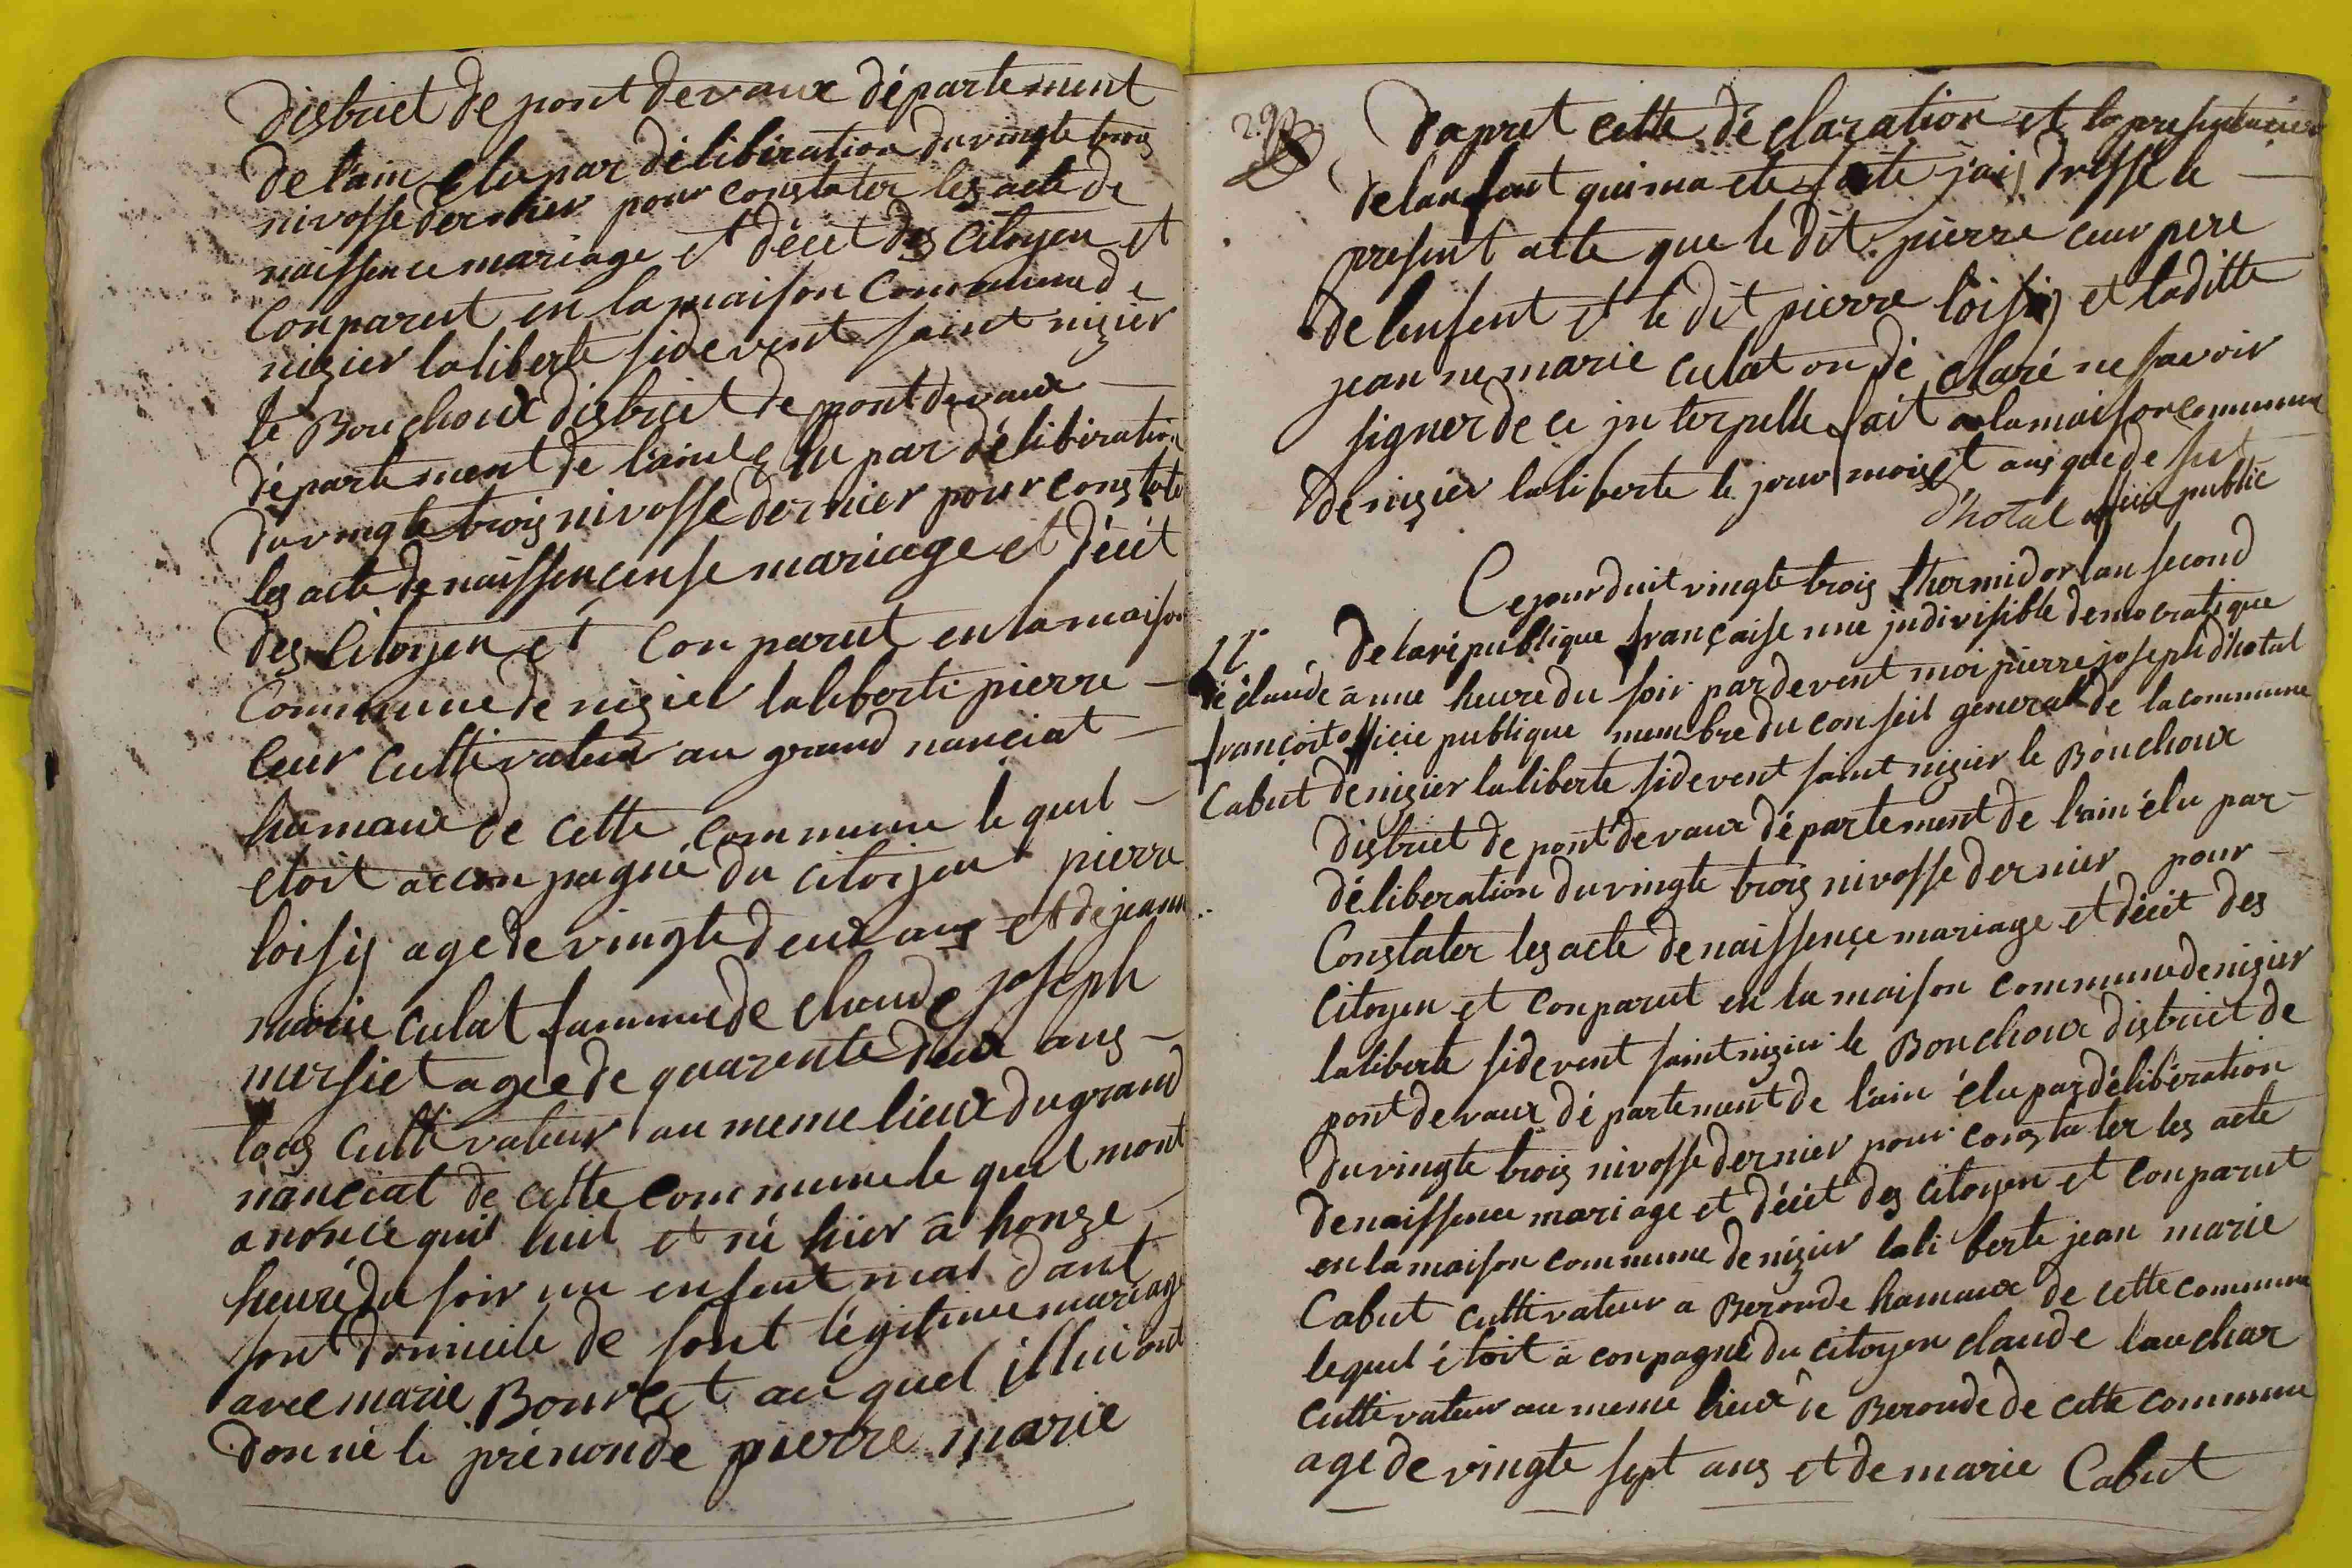 District de pont devaux département
de lain elu par délibération du vingte trois
nivosse dernier pour constater les acte de
naissence mariage et décet des Citoyen et
Conparut en la maison Commune de
nizier laliberte sidevent saint nizier
le Bouchoux district de pontdevaux
département de l'ain elu par délibération
du vingte trois nivosse dernier pour constate
les acte de naissencense mariage et décet
des Citoyen et Conparut en la maison
Commune de nizier laliberté pierre
ceur cultivateur au grand nanciat
hamaux de cette commune lequel
etoit acconpagné du citoijen pierre
loisij age de vingte deux ans et de jeanne
marie culat famme de claude joseph
mersiet agee de quarente deux ans
tous cultivateur au meme lieux du grand
nanciat de cette commune le quel mont
anoncé quil luit et né hier à honze
heure du soir un enfent mal dant
sont domicile de sont légitime mariage
avec marie Bouvet au quel illui ont
donné le prénon de pierre marie
29
Dapret cette dé claration et la presentacion
de lanfant quima ete faite jaij dressé le
present acte que le dit pierre ceur pere
de lenfent et le dit pierre loisij et laditte
jeanne marie culat on dé claré ne savoir
signer de ce interpellé fait a la maison commune
de nizier laliberte le jour mois et ans que de sut
d'hotal officie public
Cejourduit vingte trois thermidor lan second
de la république française une indivisible democratique
né claude à une heure du soir pardevent moi pierre joseph d'hotal
françoit officie publique membre du conseil general de la commune
Cabut de nizier laliberte sidevent saint nizier le Bouchoux
District de pont devaux département de lain élu par
délibération du vingte trois nivosse dernier pour
Constater les acte de naissençe mariage et décet des
Citoyen et conparut en la maison commune de nizier
laliberte sidevent saint nizier le Bouchoux district de
pont devaux département de l'ain élu par délibération
du vingte trois nivosse dernier pour constater les acte
de naissence mariage et décet des citoyen et conparut
en la maison commune de nizier laliberte jean marie
Cabut cultivateur a Beronde hamaux de cette commune
lequel étoit à conpagné du citoyen claude lauchar
cultivateur au meme lieux de Beronde de cette commune
age de vingte sept ans et de marie Cabut